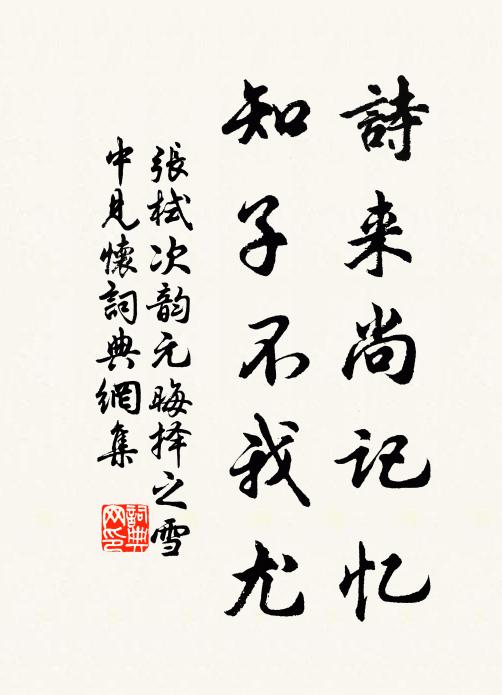 詩来尚记忆
知子不我尤
張栻次韵元晦择之雪
中見懷詞典網集
詞典
网印